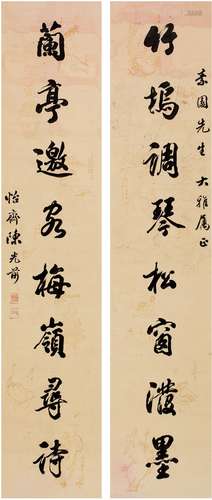 李園先生 大雅屬正
竹塢調琴松窗潑墨
蘭亭邀客梅嶺尋詩
怡齋陳光前